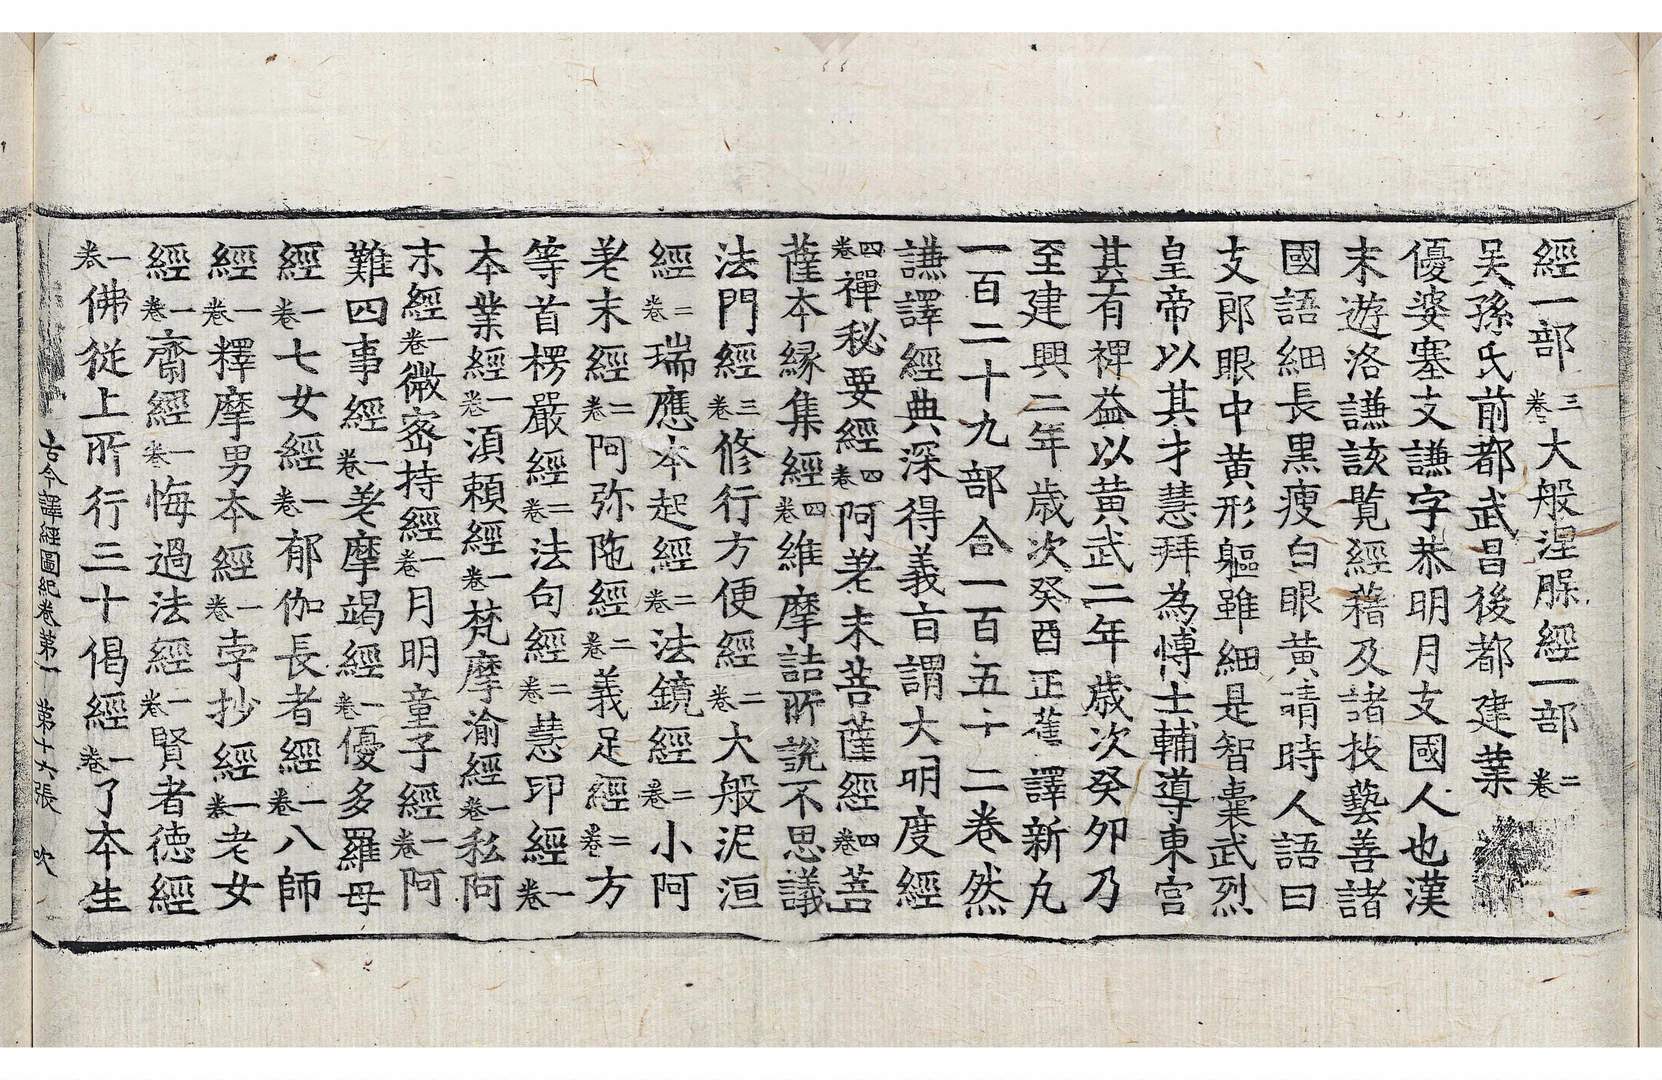 經一部三卷大般涅脲經一部二卷
吳孫氏前都武昌後都建業
優婆塞支謙字恭明月支國人也漢
末遊洛謙該覽經籍及諸技藝善諸
國語細長黑瘦白眼黃睛時人語曰
支郎眼中黃形軀雖細是智囊武烈
皇帝以其才慧拜為愽士輔導東宮
甚有裨益以黃武二年歲次癸夘乃
至建興二年歲次癸酉正舊譯新凡
一百二十九部合一百五十二卷然
謙譯經典深得義㫖謂大明度經
四卷禪秘要經四卷阿差末菩薩經四卷菩
薩本緣集經四卷維摩詰所說不思議
法門經三卷修行方便經二卷大般泥洹
經二卷瑞應本起經二卷法鏡經二卷小阿
差末經二卷阿弥陁經二卷義足經二卷方
等首楞嚴經二卷法句經二卷慧印經一卷
本業經一卷湏賴經一卷梵摩渝經一卷私阿
末經一卷微密持經一卷月明童子經一卷阿
難四事經一卷差摩竭經一卷優多羅母
經一卷七女經一卷郁伽長者經一卷八師
經一卷釋摩男本經一卷孛抄經一卷老女
經一卷齋經一卷悔過法經一卷賢者德經
一卷佛從上所行三十偈經一卷了本生
古今譯經圖紀卷第一 第十六張 吹